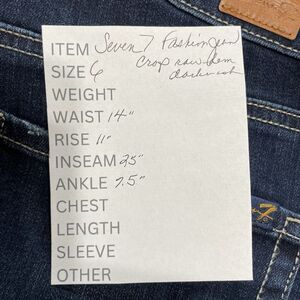 ITEM Seven7 Fashion Jean
SIZE 6 crop raw hem
dark wash
WEIGHT
WAIST 14"
RISE 11"
INSEAM 25"
ANKLE 7.5"
CHEST
LENGTH
SLEEVE
OTHER